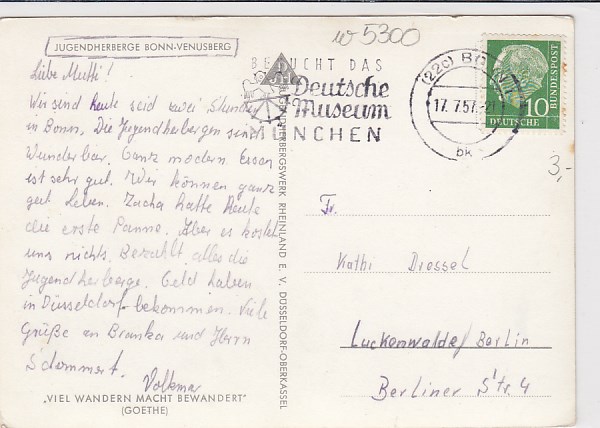 w 5300
JUGENDHERBERGE BONN-VENUSBERG
Liebe Mutti!
Wir sind heute seid zwei Stunden
in Bonn. Die Jugendherbergen sind
Wunderbar. Ganz modern Essen
ist sehr gut. Wir können ganz
gut leben. Zacha hatte Heute
die erste Panne. Aber es kostet
uns nichts. Bezahlt alles die
Jugendherberge. Geld haben
in Düsseldorf bekommen. Viele
Grüße an Branka und Herrn
Volkmar
„VIEL WANDERN MACHT BEWANDERT"
(GOETHE)
JUGENDHERBERGSWERK RHEINLAND E. V. DÜSSELDORF-OBERKASSEL
BESUCHT DAS
Deutsche
Museum
MÜNCHEN
(22c) BONN
17.7.57.-21
bk
10
DEUTSCHE
BUNDESPOST
3,-
Fr.
Kathi Dressel
Luckenwalde / Berlin
Berliner Str. 4